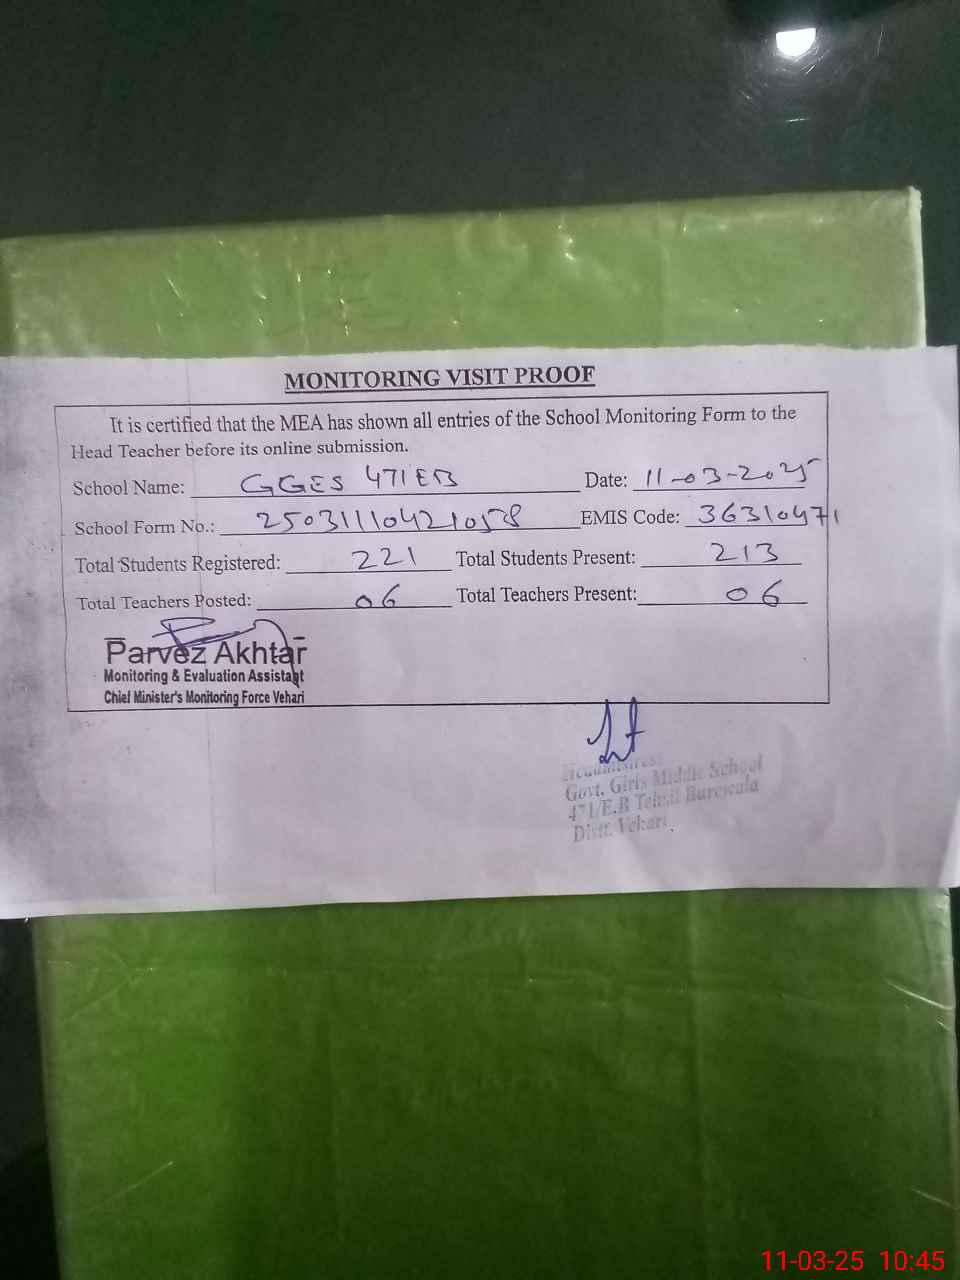 MONITORING VISIT PROOF
It is certified that the MEA has shown all entries of the School Monitoring Form to the
Head Teacher before its online submission.
School Name: GGES 471EB Date: 11-03-2025
School Form No.: 250311104210528 EMIS Code: 36310471
Total Students Registered: 221 Total Students Present: 213
Total Teachers Posted: 06 Total Teachers Present: 06
Parvez Akhtar
Monitoring & Evaluation Assistant
Chief Minister's Monitoring Force Vehari
Headmistress
Govt. Girls Middle School
471/E.B Tehsil Burewala
Distt. Vehari.
11-03-25 10:45